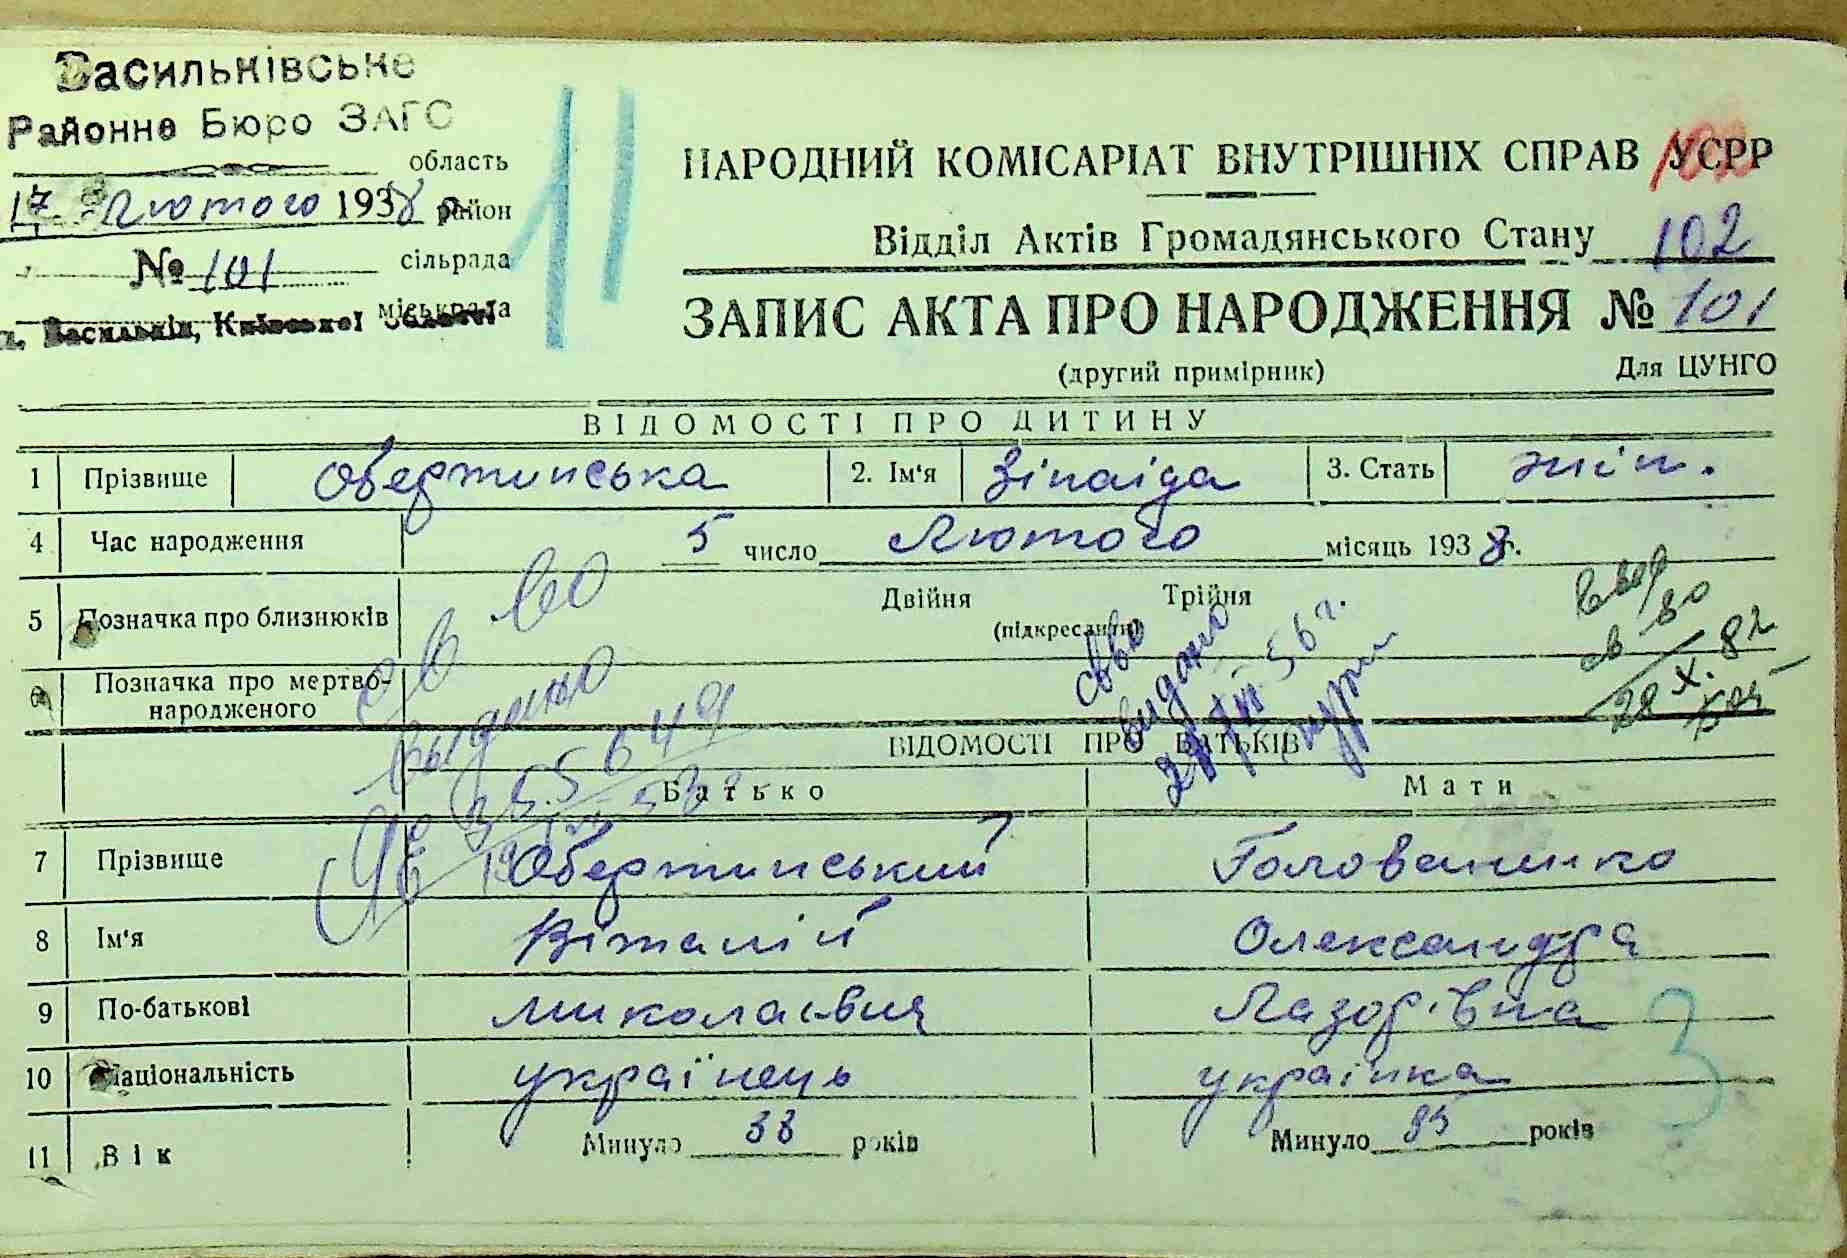 Васильківське
Районне Бюро ЗАГС
область
17 Лютого 1938 р.
район
№ 101
сільрада
міськрада
м. Васильків, Київської області
11
НАРОДНИЙ КОМІСАРІАТ ВНУТРІШНІХ СПРАВ УСРР
Відділ Актів Громадянського Стану 102
ЗАПИС АКТА ПРО НАРОДЖЕННЯ № 101
(другий примірник) Для ЦУНГО
ВІДОМОСТІ ПРО ДИТИНУ
1 Прізвище Обертинська 2. Ім'я Зінаіда 3. Стать жін.
4 Час народження 5 число Лютого місяць 1938 р.
5 Позначка про близнюків Двійня Трійня
(підкреслити)
6 Позначка про мертво-
народженого
св во
выдано
видано
56 г.
св-во
28 X. 82
ВІДОМОСТІ ПРО БАТЬКІВ
Батько Мати
7 Прізвище Обертинський Голованенко
8 Ім'я Віталій Олександра
9 По-батькові Миколаєвич Лазорівна
10 Національність українець українка
11 Вік Минуло 38 років Минуло 35 років
3